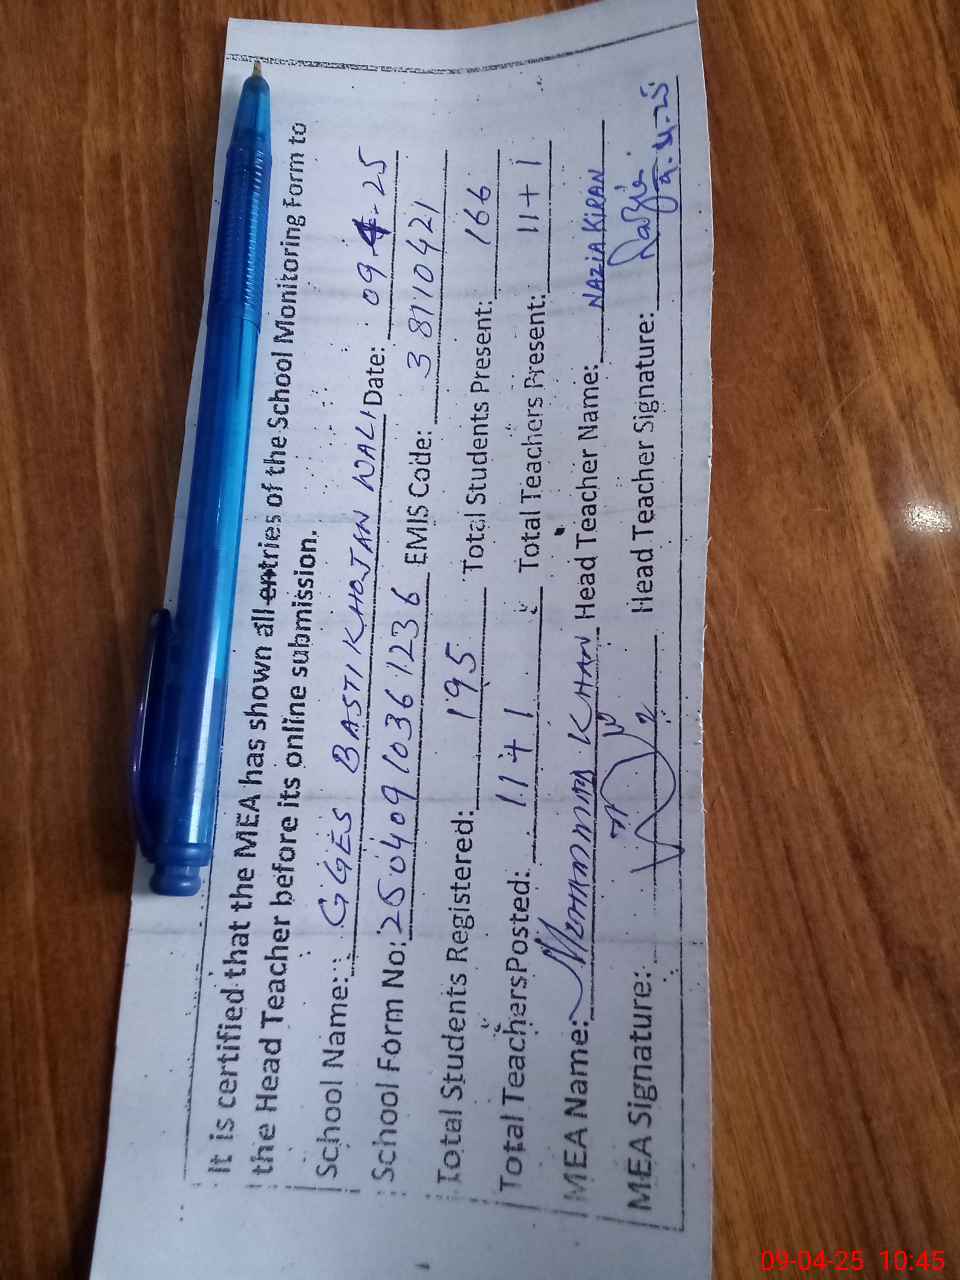 It is certified that the MEA has shown all entries of the School Monitoring Form to
the Head Teacher before its online submission.
School Name: GGES BASTI KHOJAN WALI Date: 09-4-25
School Form No: 250409 1036 1236 EMIS Code: 3 8110421
Total Students Registered: 195 Total Students Present: 166
Total Teachers Posted: 11+1 Total Teachers Present: 11+1
MEA Name: MUHAMMAD KHAN Head Teacher Name: NAZIA KIRAN
MEA Signature: Head Teacher Signature: Nazia
9.4.25
09-04-25 10:45